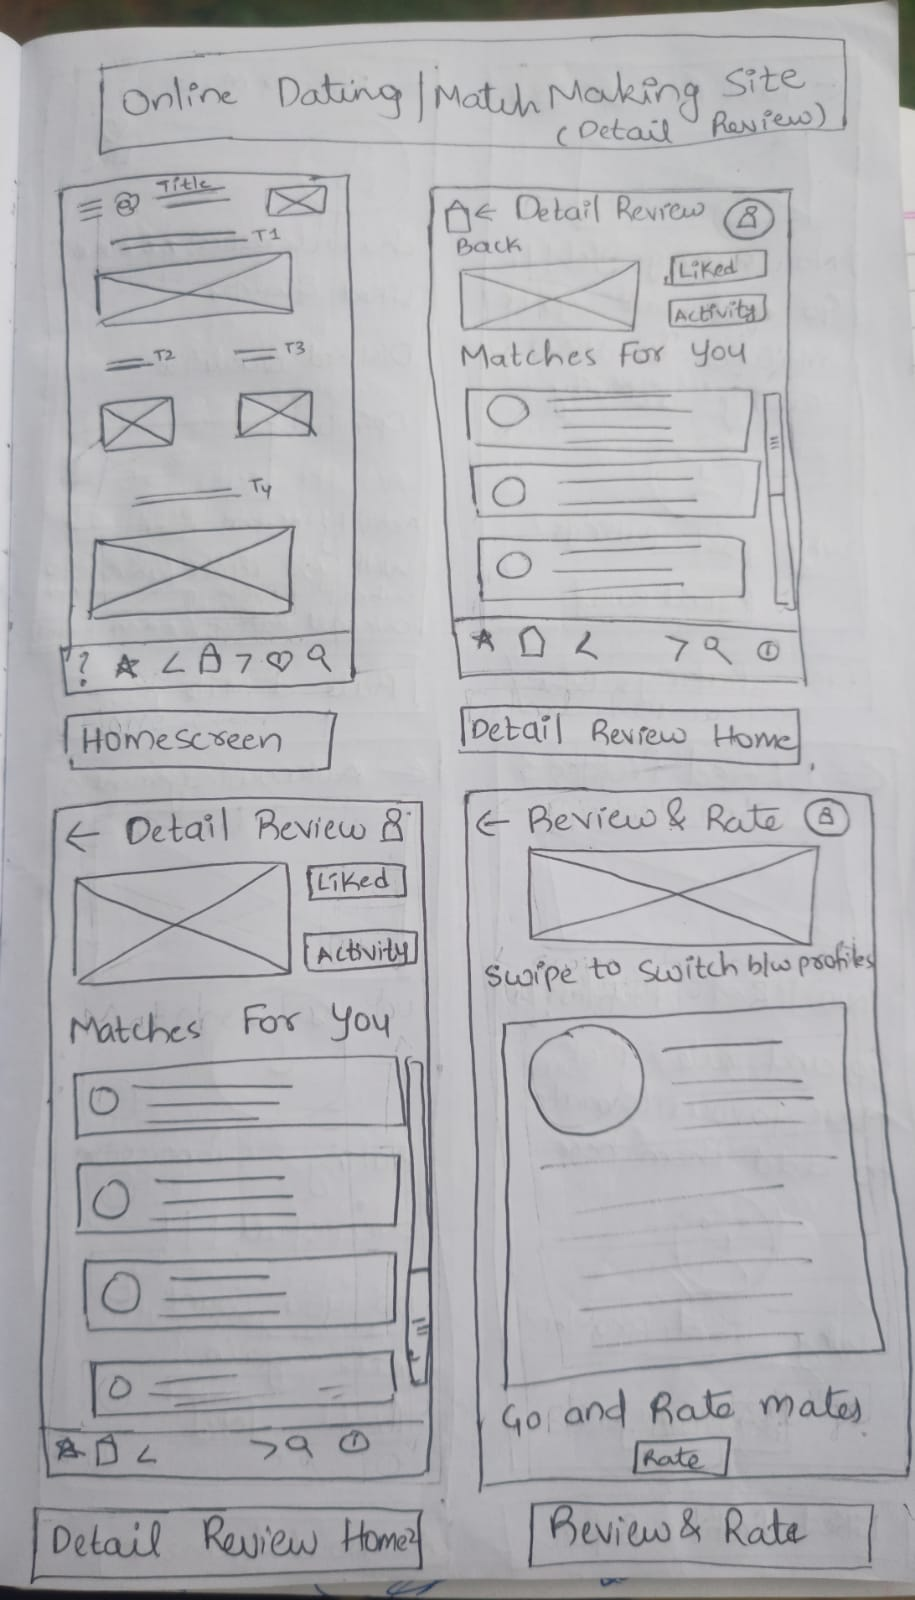 Online Dating/MatchMaking Site
(Detail Review)
Title
T1
T2
T3
T4
?
Homescreen
Detail Review
Back
Liked
Activity
Matches For You
Detail Review Home
Detail Review
Liked
Activity
Matches For You
Detail Review Home2
Review & Rate
Swipe to Switch b/w profiles
Go and Rate mates
Rate
Review & Rate